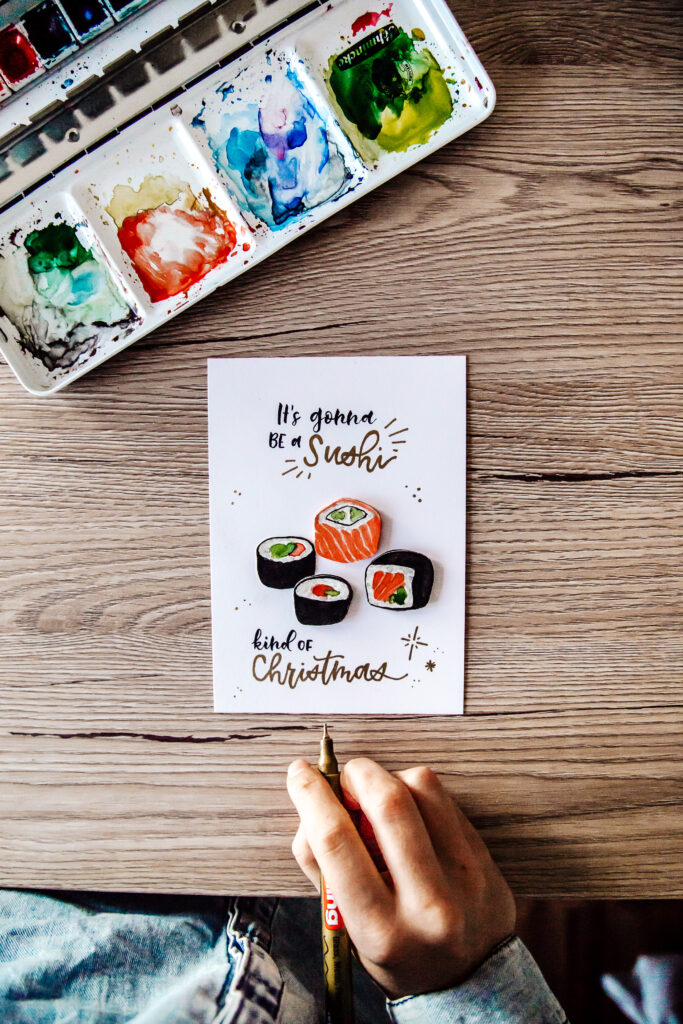 Schmincke
It's gonna
BE a Sushi
kind OF
Christmas